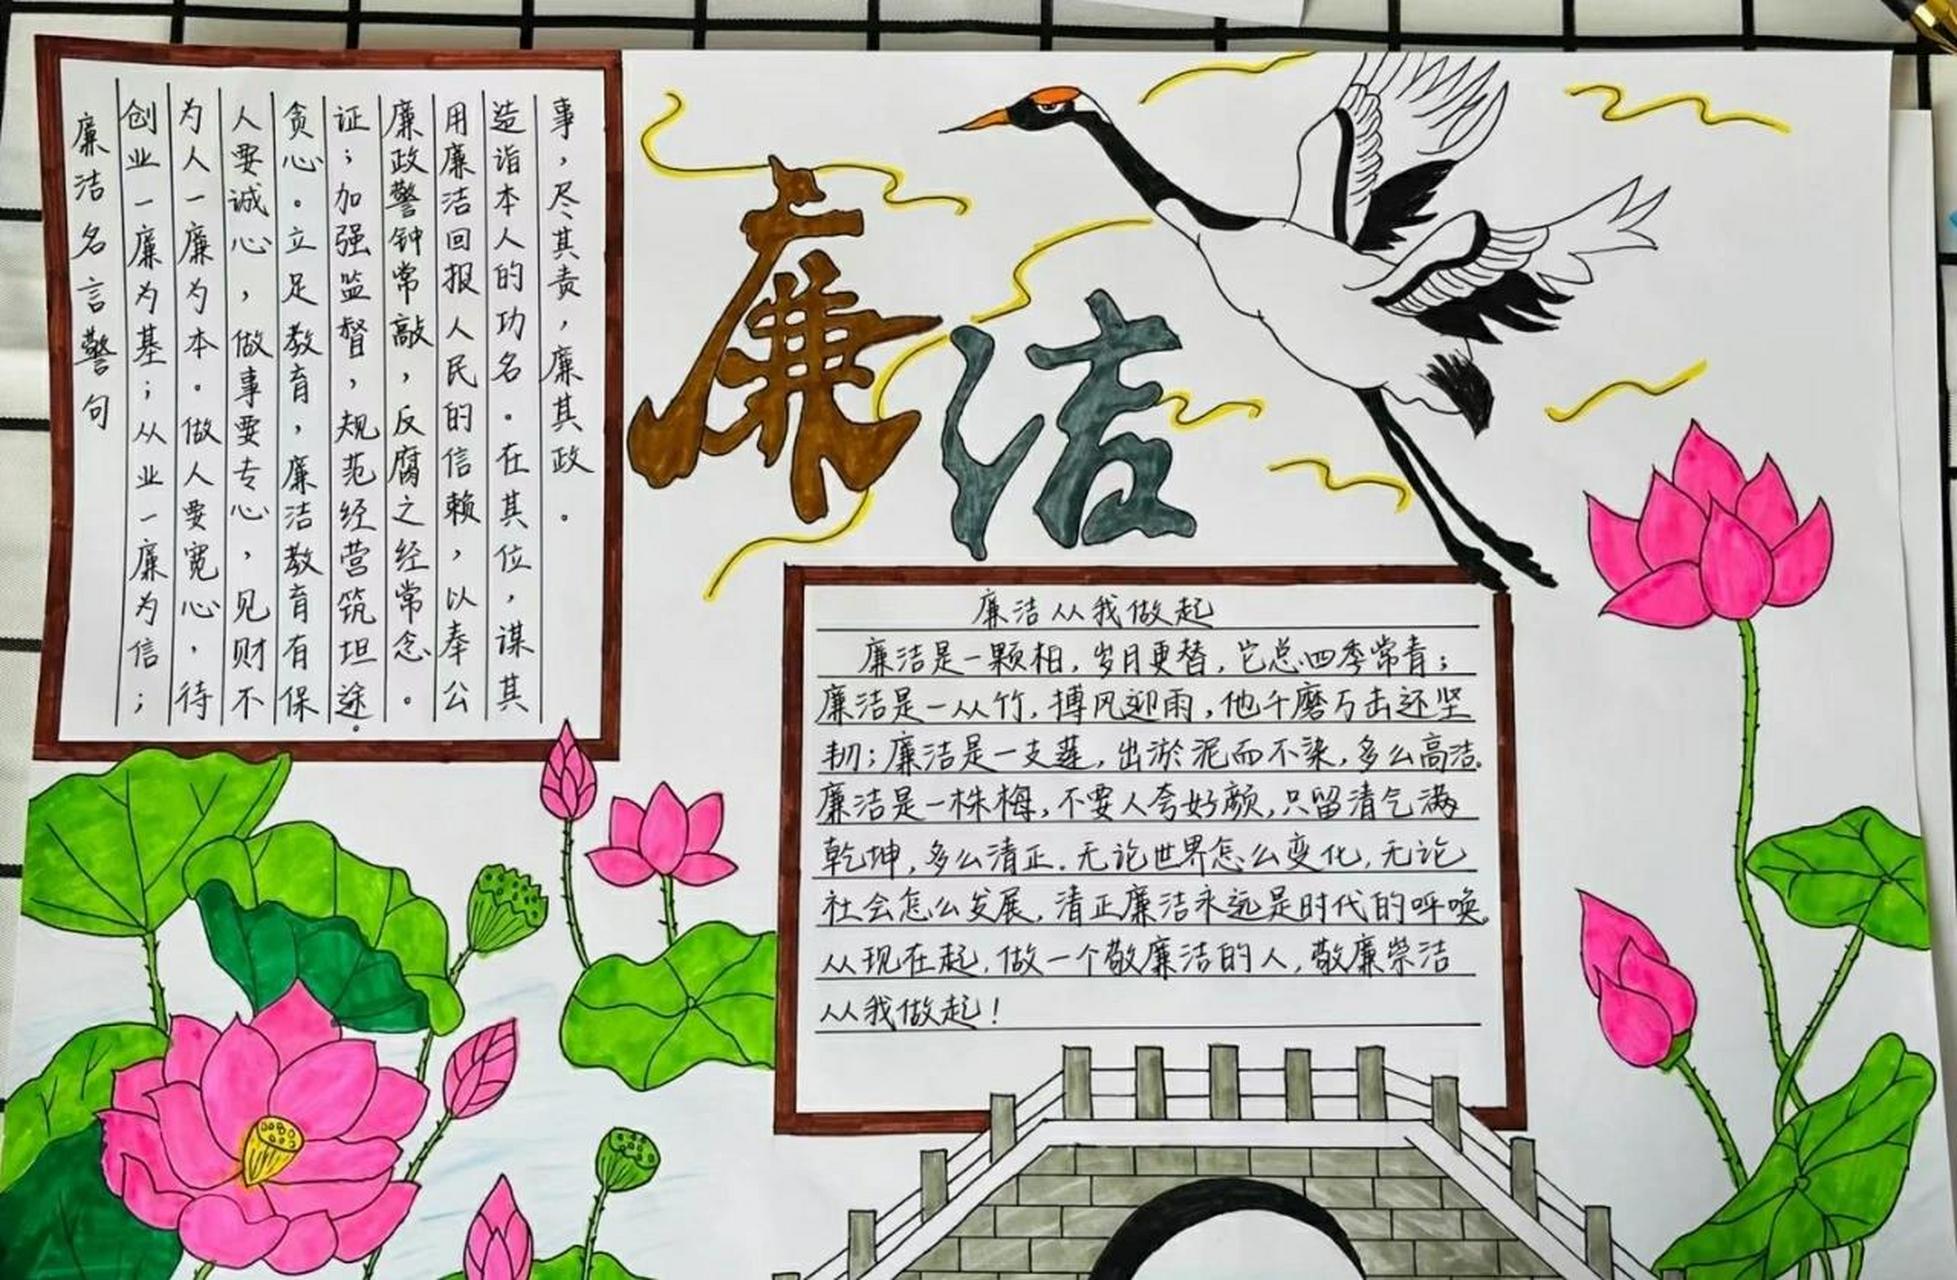 廉洁名言警句
创业一廉为基；从业一廉为信；
为人一廉为本。做人要宽心，待
人要诚心，做事要专心，见财不
贪心。立足教育，廉洁教育有保
证；加强监督，规范经营筑坦途。
廉政警钟常敲，反腐之经常念。
用廉洁回报人民的信赖，以奉公
造诣本人的功名。在其位，谋其
事，尽其责，廉其政。
廉洁
廉洁从我做起
廉洁是一颗相，岁月更替，它总四季常青；
廉洁是一从竹，搏风迎雨，他千磨万击还坚
韧；廉洁是一支莲，出淤泥而不染，多么高洁。
廉洁是一株梅，不要人夸好颜，只留清气满
乾坤，多么清正。无论世界怎么变化，无论
社会怎么发展，清正廉洁永远是时代的呼唤。
从现在起，做一个敬廉洁的人，敬廉崇洁
从我做起！